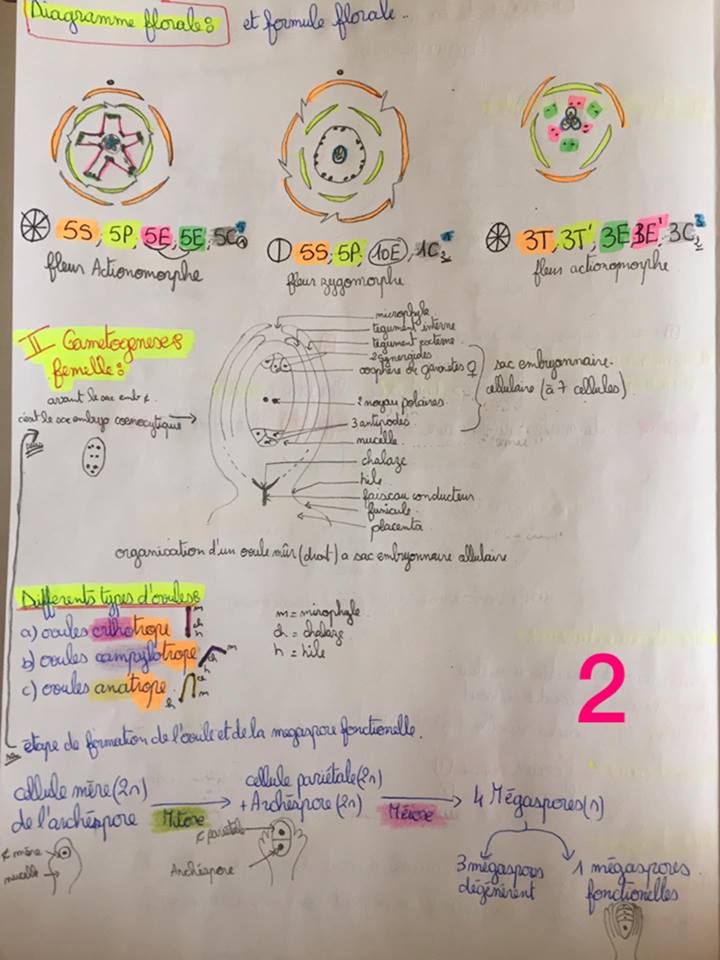 Diagramme florale: et formule florale.
5S, 5P, 5E, 5E, 5C
fleur Actionomorphe
5S, 5P, (10E), 1C
fleur zygomorphe
3T, 3T', 3E, 3E', 3C
fleur actionomorphe
II Gametogenese
femelle:
avant le sac emb
c'est le sac embryo coenocytique
microphyle
tegument interne
tegument externe
2 synergides
oosphère de gamètes ♀
2 noyau polaires
3 antipodes
nucelle
chalaze
hile
faiscau conducteur
funicule
placenta
sac embryonnaire
cellulaire (à 7 cellules)
organisation d'un ovule mûr (droit) a sac embryonnaire cellulaire
Differents types d'ovules:
a) ovules orthotrope
m
ch
h
b) ovules campylotrope
h
ch
m
c) ovules anatrope
h
ch
m
m = mirophyle
ch = chalaze
h = hile
2
étape de formation de l'ovule et de la megaspore fonctionelle.
cellule mère (2n)
de l'archéspore
Mitose
cellule pariétale (2n)
+ Archéspore (2n)
Méiose
4 Mégaspores (n)
¢ mère
nucelle
¢ parietale
Archéspore
3 mégaspores
dégénèrent
1 mégaspores
fonctionelles